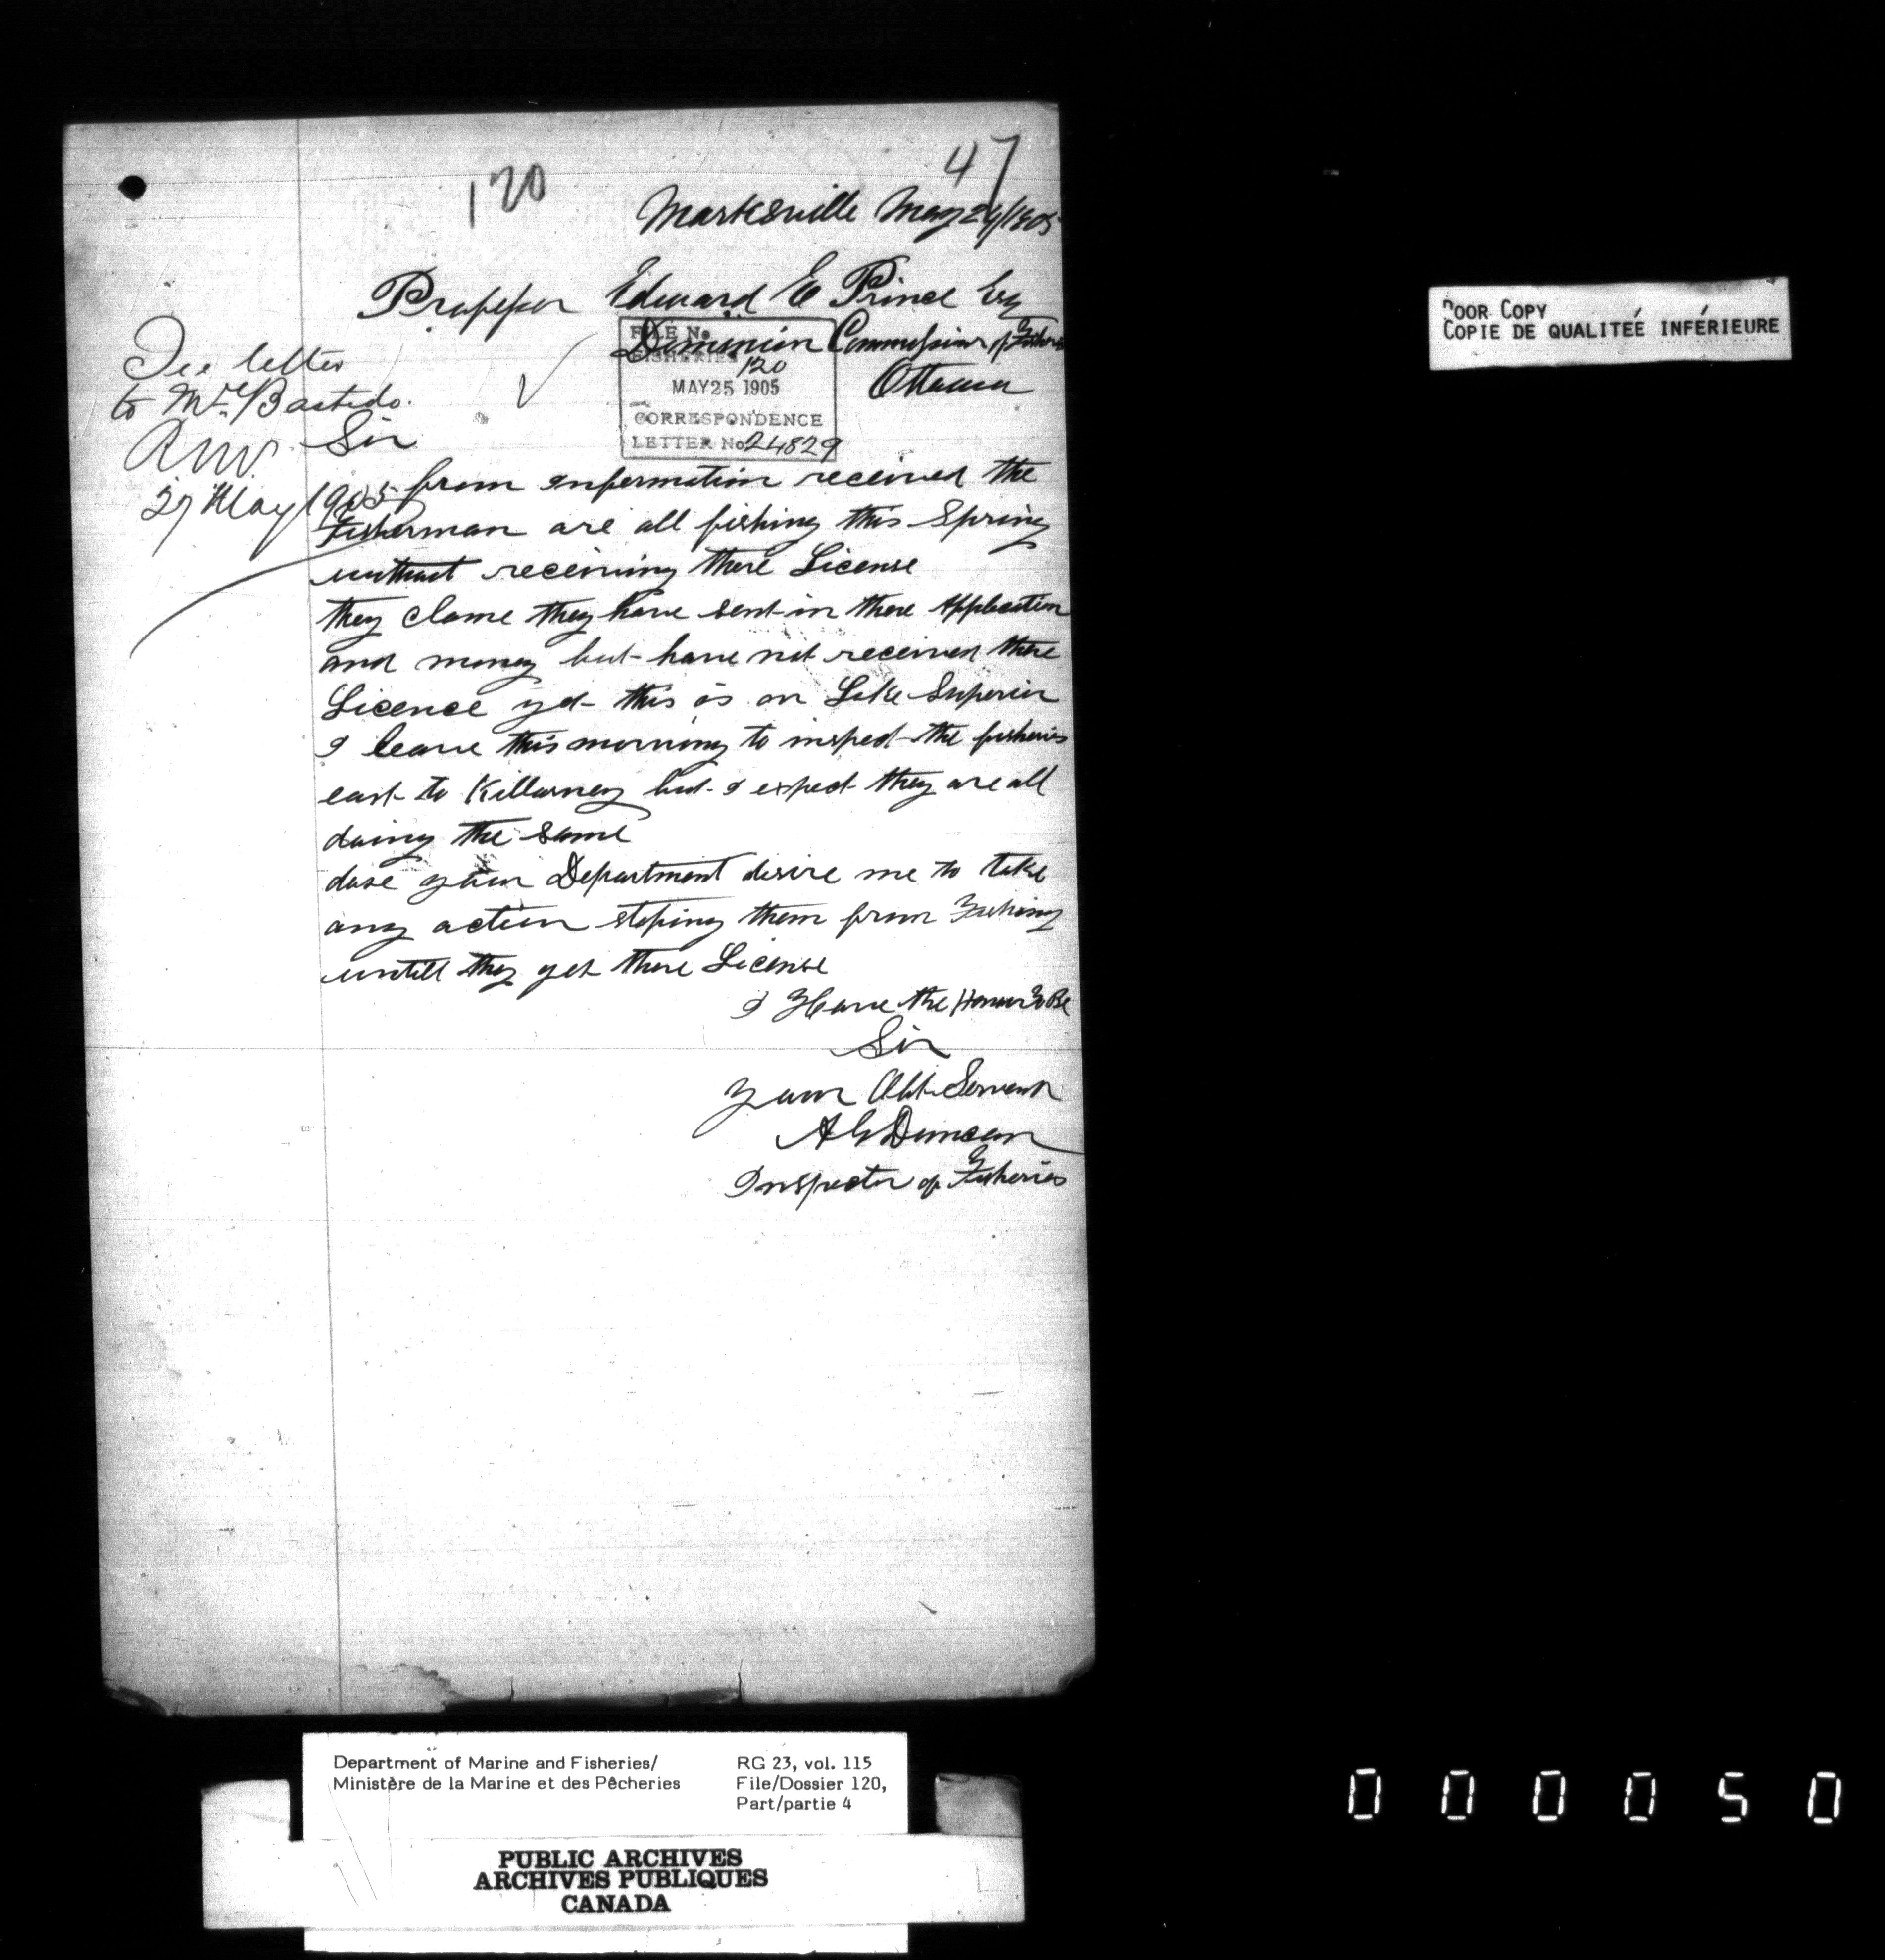 47
120
Marksville May 24/1905
Professor Edward E Prince Esq
Dominion Commissioner of Fisheries
Ottawa
FILE No
FISHERIES
120
MAY 25 1905
CORRESPONDENCE
LETTER No 24829
See letter
to Mr. Bastedo.
27 May 1905
Sir
from information received the
Fisherman are all fishing this Spring
without receiving there License
they clame they have sent in there Application
and money but have not received there
Licence yet this is on Lake Superior
I leave this morning to inspect the fisheries
east to Killarney but I expect they are all
doing the same
dose your Department desire me to take
any action stoping them from Fishing
untill they get there License
I Have the Honour To Be
Sir
Your Obt Servent
A G Duncan
Inspector of Fisheries
POOR COPY
COPIE DE QUALITEÉ INFÉRIEURE
Department of Marine and Fisheries/
Ministère de la Marine et des Pêcheries
RG 23, vol. 115
File/Dossier 120,
Part/partie 4
PUBLIC ARCHIVES
ARCHIVES PUBLIQUES
CANADA
000050